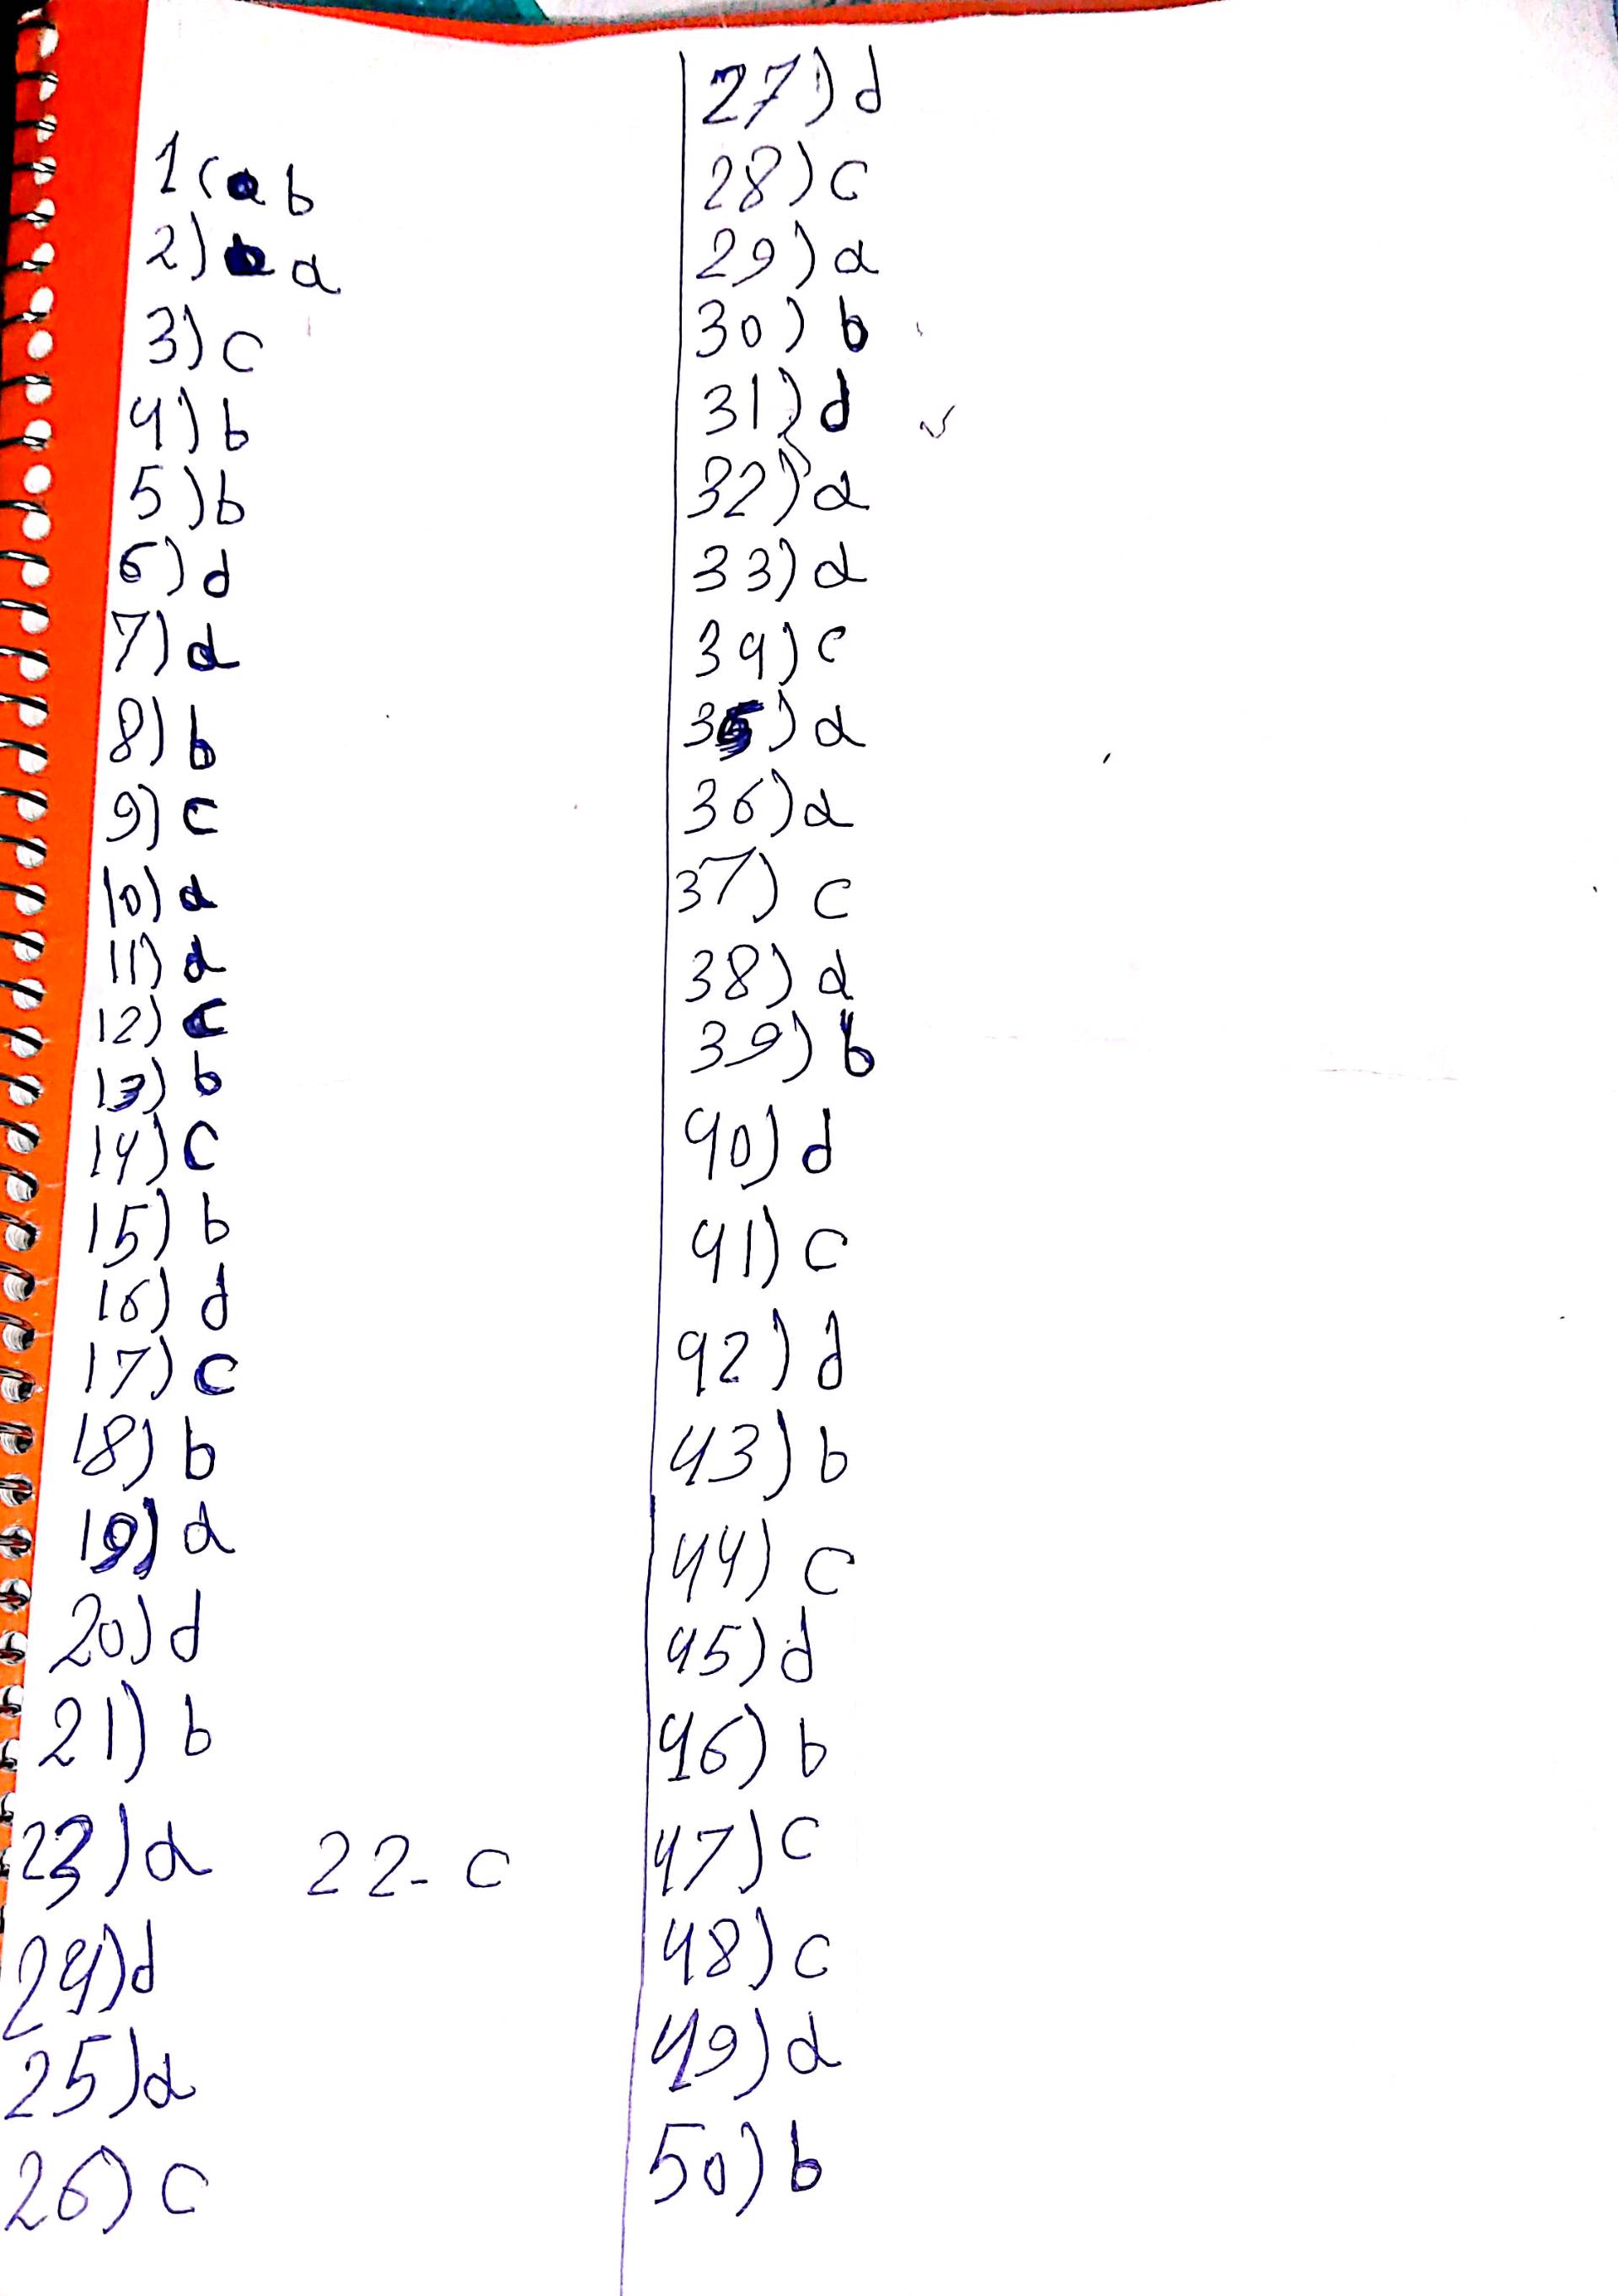 1( b
2) a
3) c
4) b
5) b
6) d
7) a
8) b
9) c
10) a
11) a
12) c
13) b
14) c
15) b
16) d
17) c
18) b
19) a
20) d
21) b
23) a 22- c
24) d
25) a
26) c
27) d
28) c
29) a
30) b
31) d
32) a
33) a
34) c
35) a
36) a
37) c
38) a
39) b
40) d
41) c
42) d
43) b
44) c
45) d
46) b
47) c
48) c
49) a
50) b